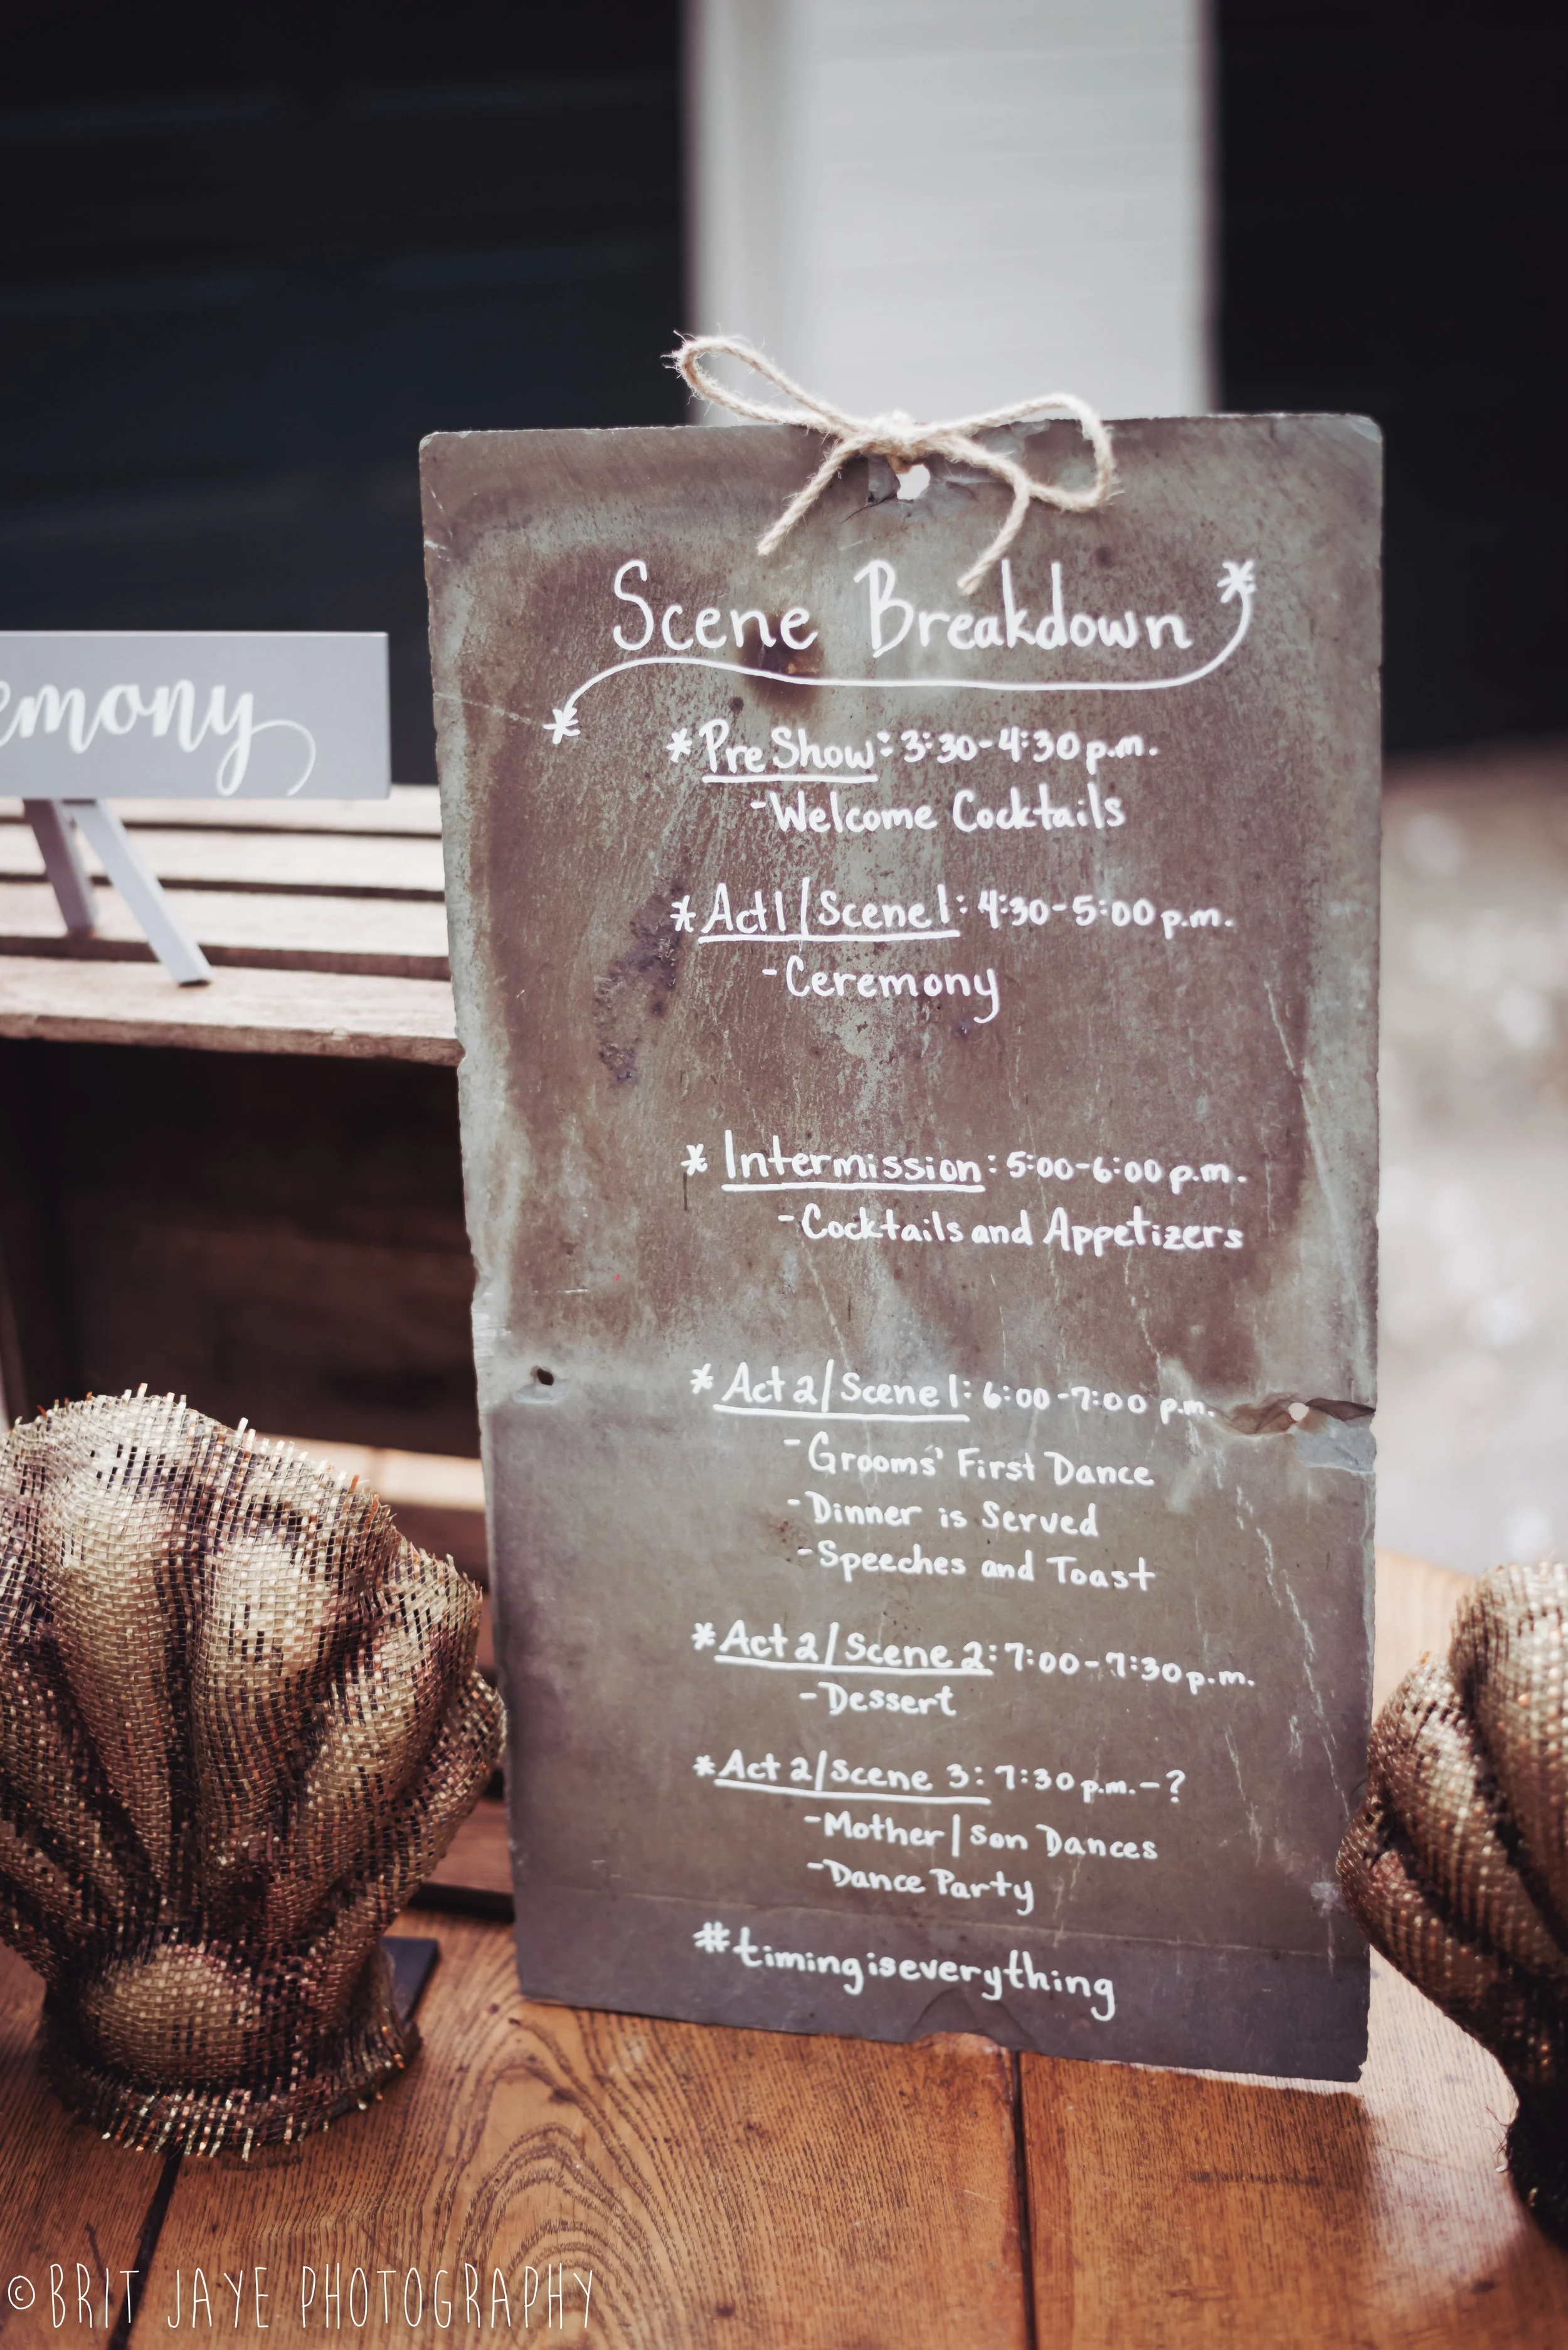 Scene Breakdown
emony
* Pre Show: 3:30-4:30 p.m.
- Welcome Cocktails
* Act 1/Scene 1: 4:30-5:00 p.m.
- Ceremony
* Intermission: 5:00-6:00 p.m.
- Cocktails and Appetizers
* Act 2/Scene 1: 6:00-7:00 p.m.
- Grooms' First Dance
- Dinner is Served
- Speeches and Toast
* Act 2/Scene 2: 7:00-7:30 p.m.
- Dessert
* Act 2/Scene 3: 7:30 p.m.-?
- Mother/Son Dances
- Dance Party
#timingiseverything
©BRIT JAYE PHOTOGRAPHY